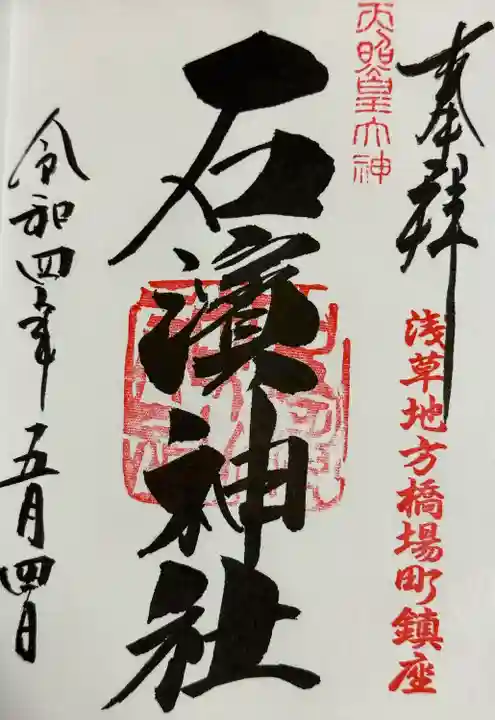 奉拝
浅草地方橋場町鎮座
天照皇大神
石濱神社
令和四年五月四日